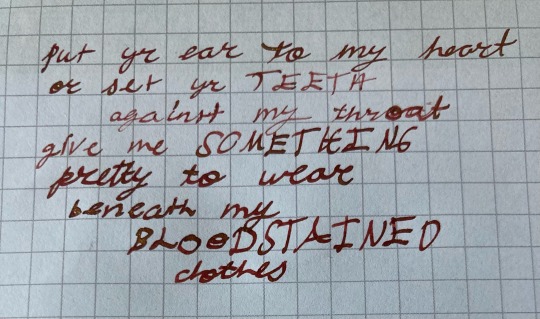 put yr ear to my heart
or set yr TEETH
against my throat
give me SOMETHING
pretty to wear
beneath my
BLOODSTAINED
clothes